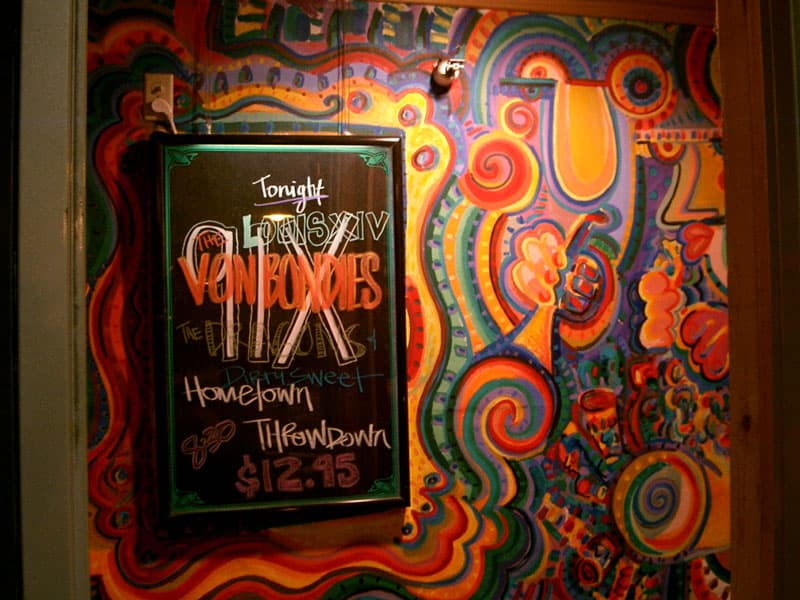 Tonight
LOUIS XIV
91X
THE
VON BONDIES
THE DRAGONS &
Dirty Sweet
Hometown
8:30 THROWDOWN
$12.95